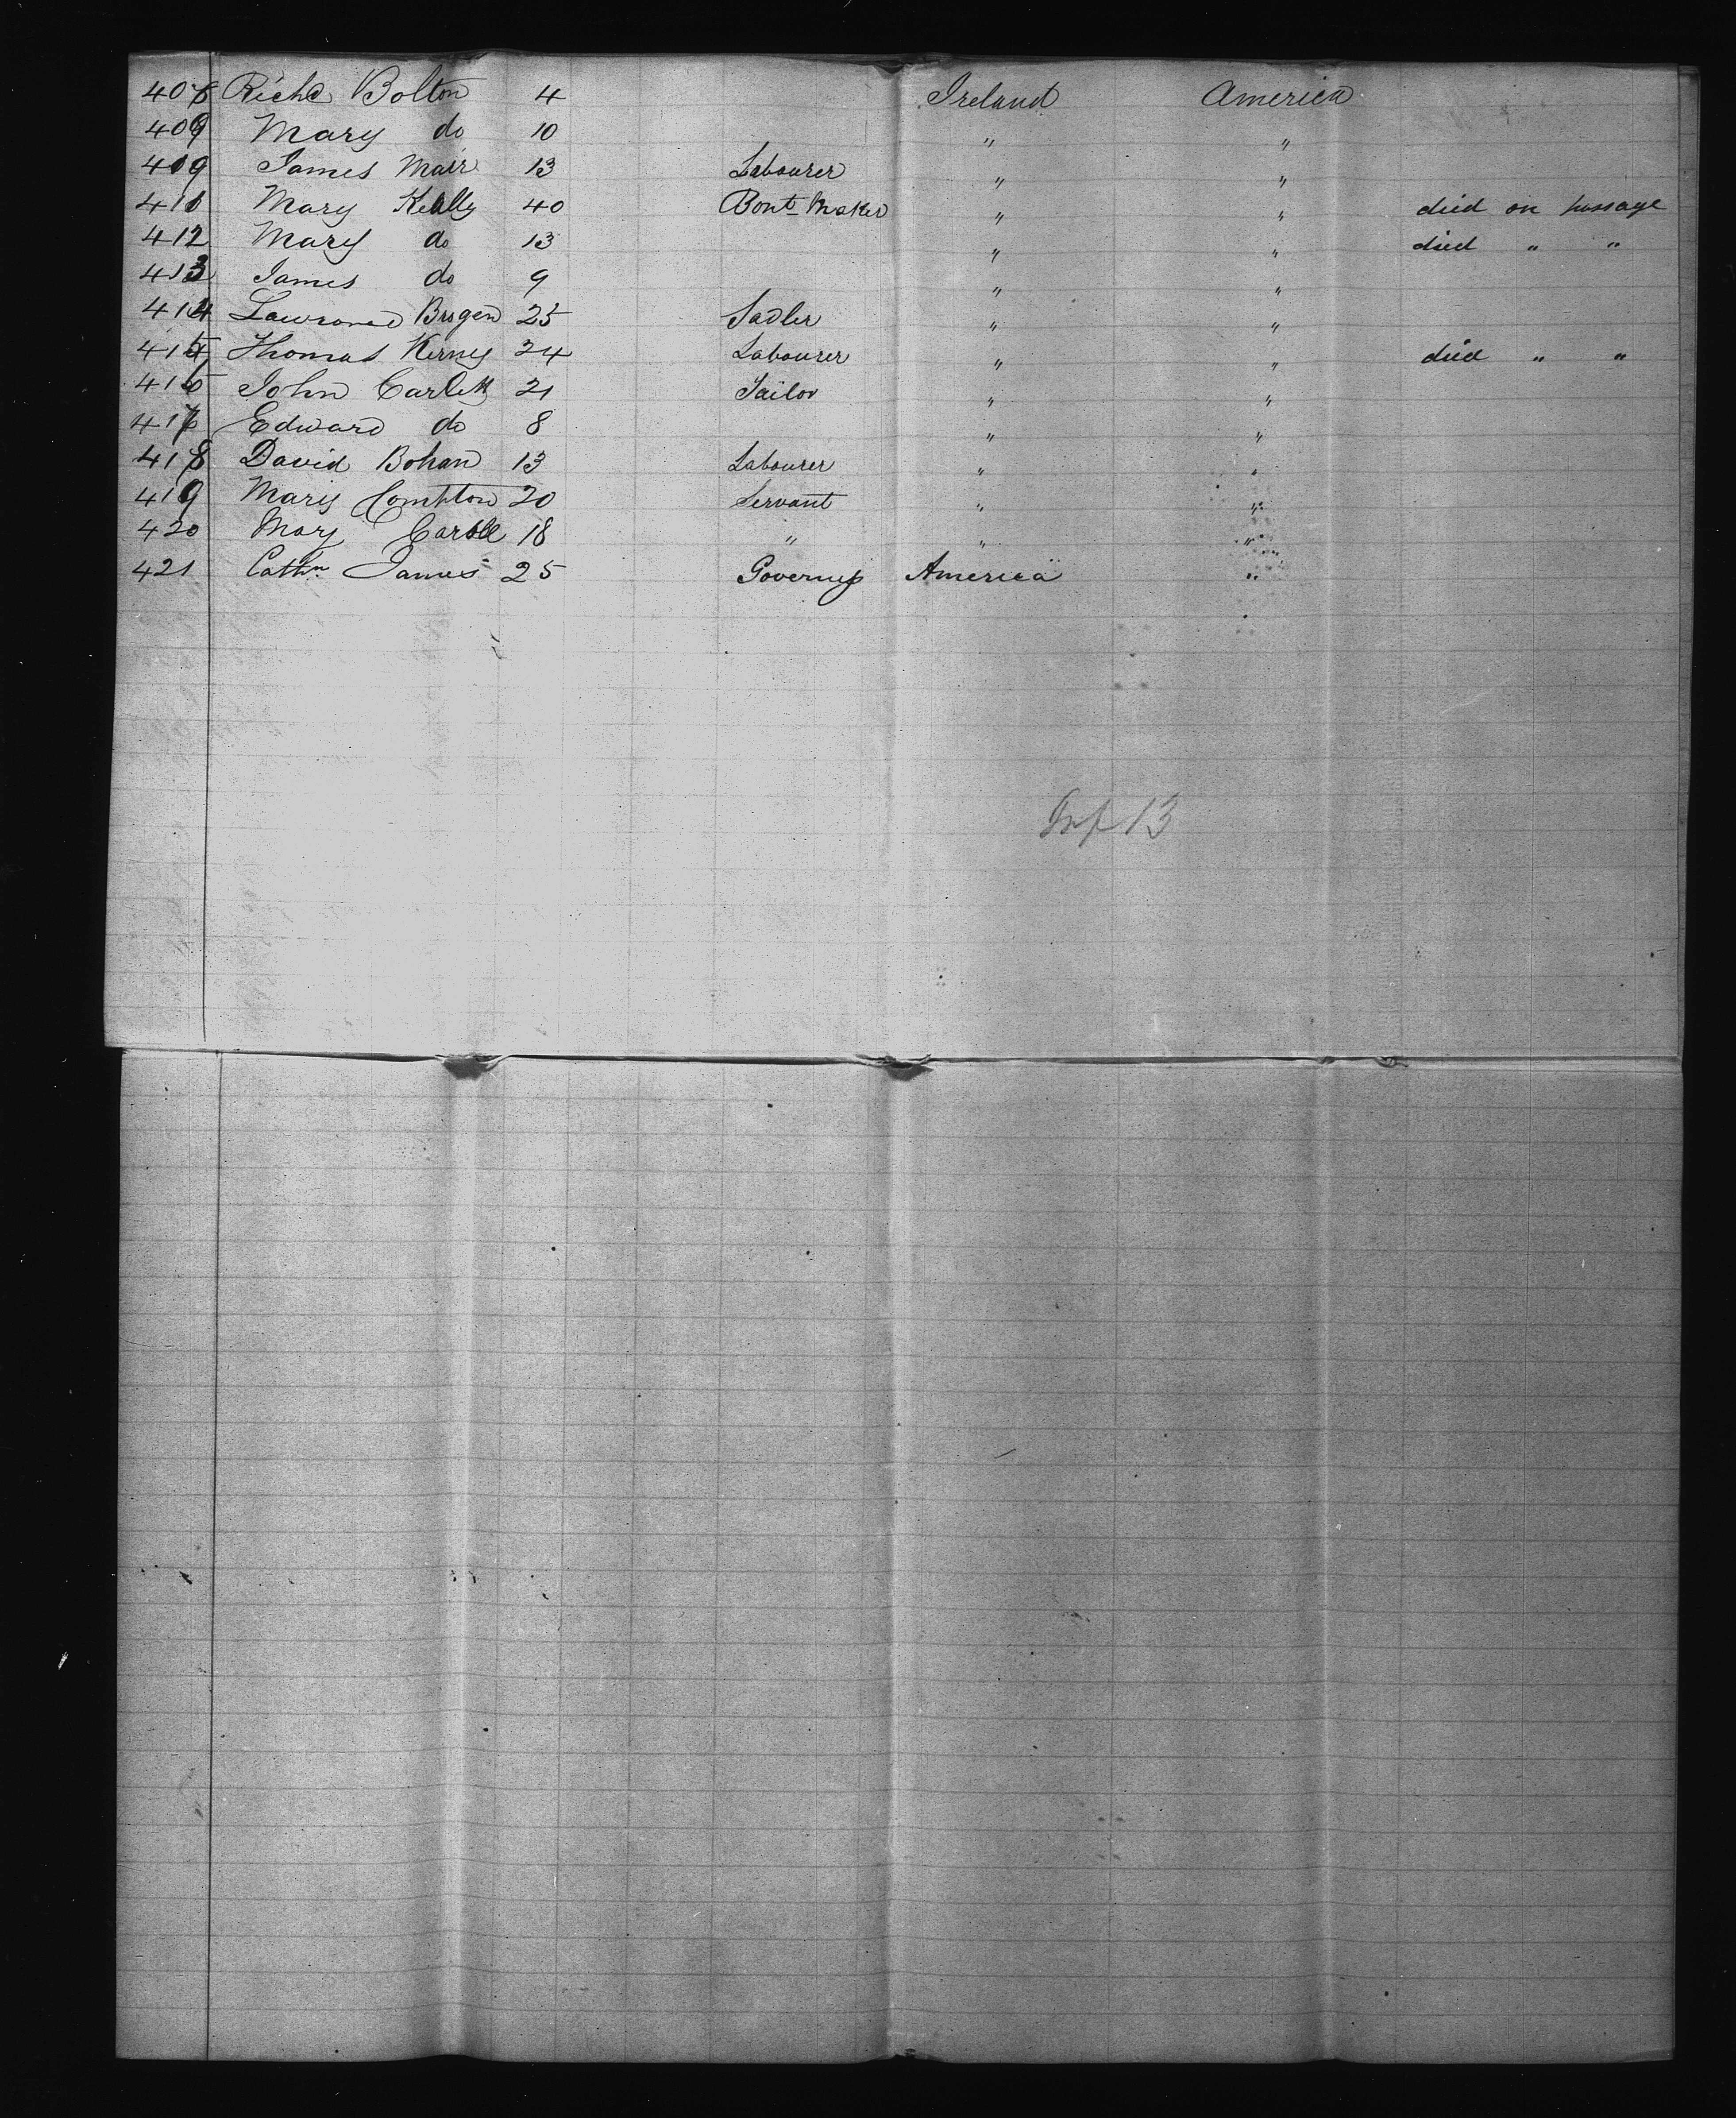 408 Richd Bolton 4 Ireland America
409 Mary do 10 " "
409 James Mair 13 Labourer " "
411 Mary Kelly 40 Bont Maker " " died on passage
412 Mary do 13 " " died " "
413 James do 9 " "
414 25 Sadler " "
415 Thomas Kerney 24 Labourer " " died " "
416 John 21 Tailor " "
417 Edward do 8 " "
418 David Bohan 13 Labourer " "
419 Mary Compton 20 Servant " "
420 Mary Caroll 18 " " "
421 Cathn James 25 Governess America "
13